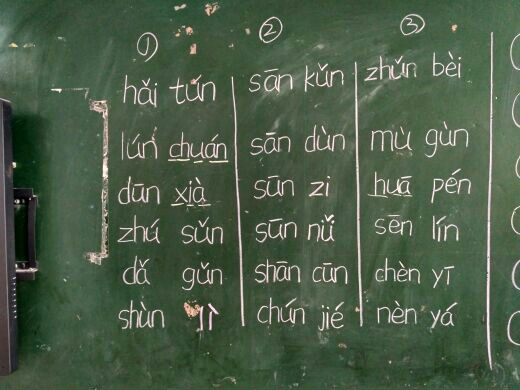 ①
hǎi tún
lún chuán
dūn xià
zhú sǔn
dǎ gǔn
shùn
②
sān kǔn
sān dùn
sūn zi
sūn nǚ
shān cūn
chún jié
③
zhǔn bèi
mù gùn
huā pén
sēn lín
chèn yī
nèn yá